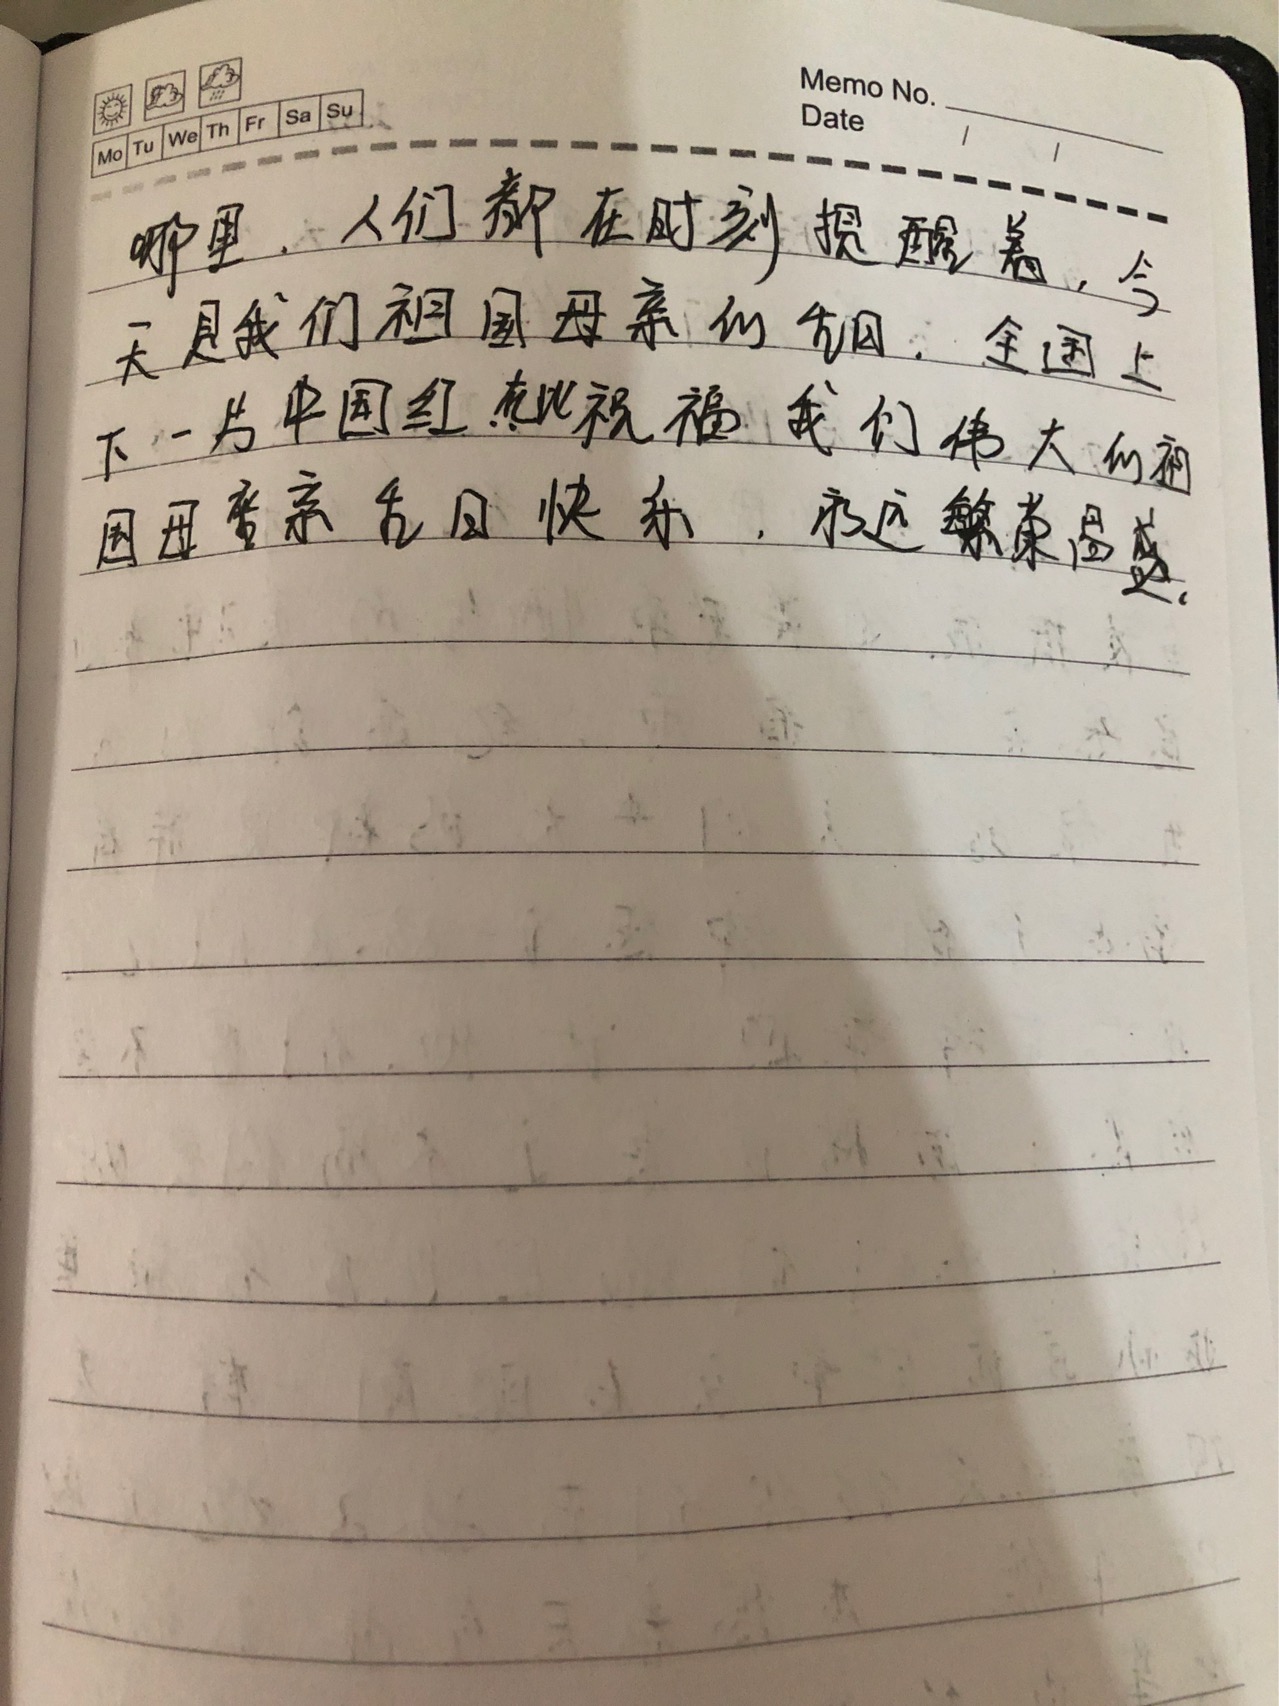 Memo No.
Date / /
Mo Tu We Th Fr Sa Su
哪里，人们都在时刻提醒着，今
天是我们祖国母亲的生日，全国上
下一片中国红，在此祝福我们伟大的祖
国母亲生日快乐，永远繁荣昌盛。